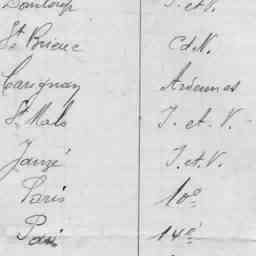 Danloup I. et V.
St Brieuc C du N.
Carignan Ardennes
St Malo I. et. V.
Janzé I. et V.
Paris 10e
Paris 14e